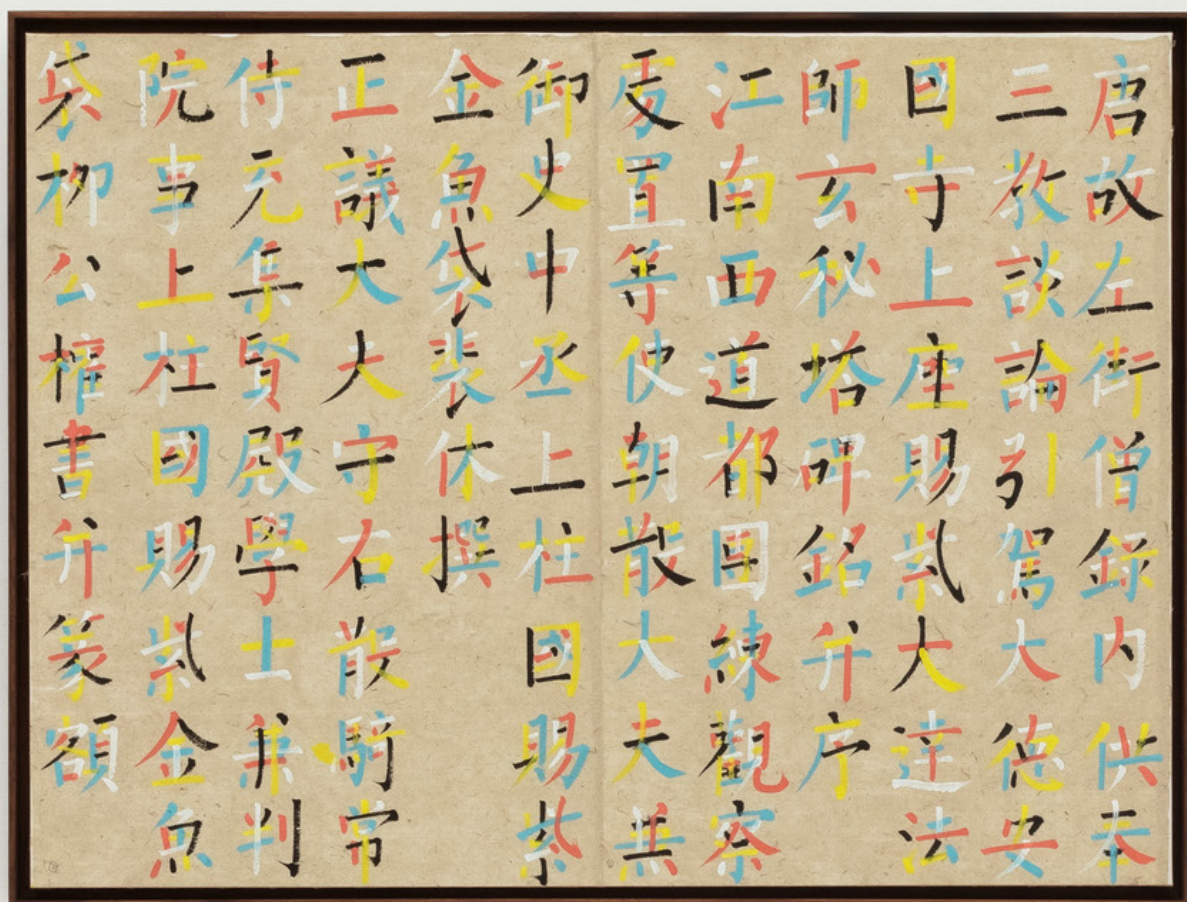 唐故左街僧録内供奉
三教談論引駕大德安
国寺上座賜紫大達法
師玄秘塔碑銘并序
江南西道都團練觀察
處置等使朝散大夫兼
御史中丞上柱國賜紫
金魚袋裴休撰
正議大夫守右散騎常
侍充集賢殿學士兼判
院事上柱國賜紫金魚
袋柳公權書并篆額